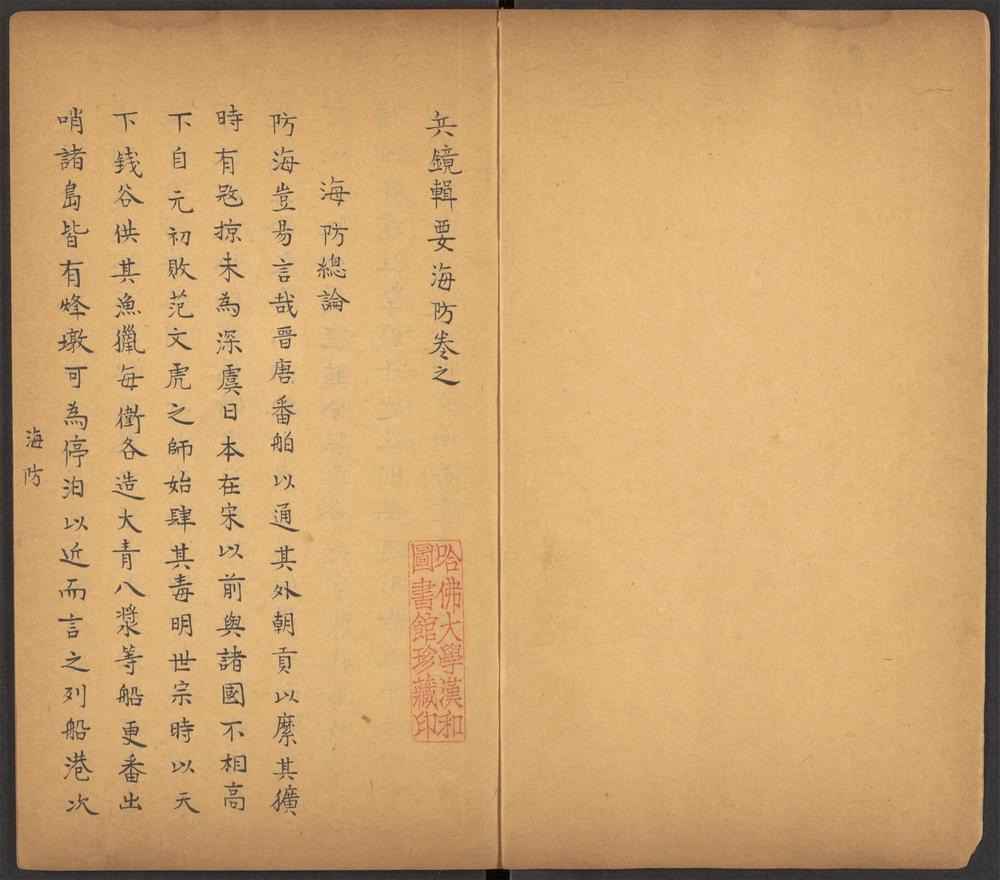 兵鏡輯要海防卷之
海防總論
防海豈昜言哉晉唐番舶以通其外朝貢以縻其獷
時有寇掠未為深虞日本在宋以前與諸國不相高
下自元初敗范文虎之師始肆其毒明世宗時以天
下錢谷供其漁獵每衛各造大青八槳等船更番出
哨諸島皆有烽墩可為停泊以近而言之列船港次
海防
哈佛大學漢和
圖書館珍藏印